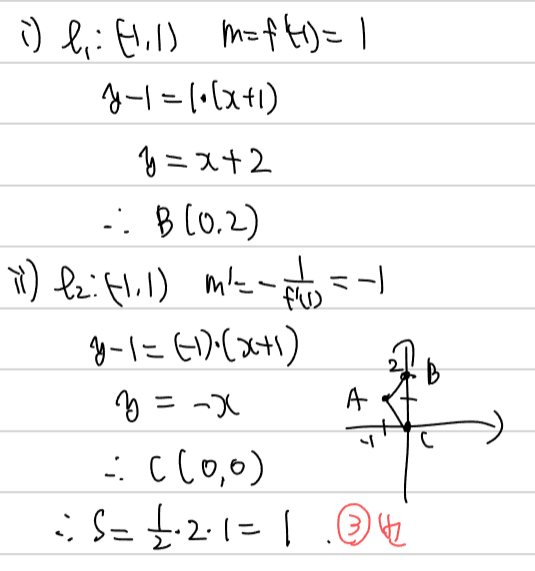 i) l₁: (-1,1) m=f'(-1)=1
y-1=1·(x+1)
y=x+2
∴ B(0,2)
ii) l₂: (-1,1) m'=-1/f'(1)=-1
y-1=(-1)·(x+1)
y=-x
∴ C(0,0)
∴ S=1/2·2·1=1. ③
2 B
A
-1 C